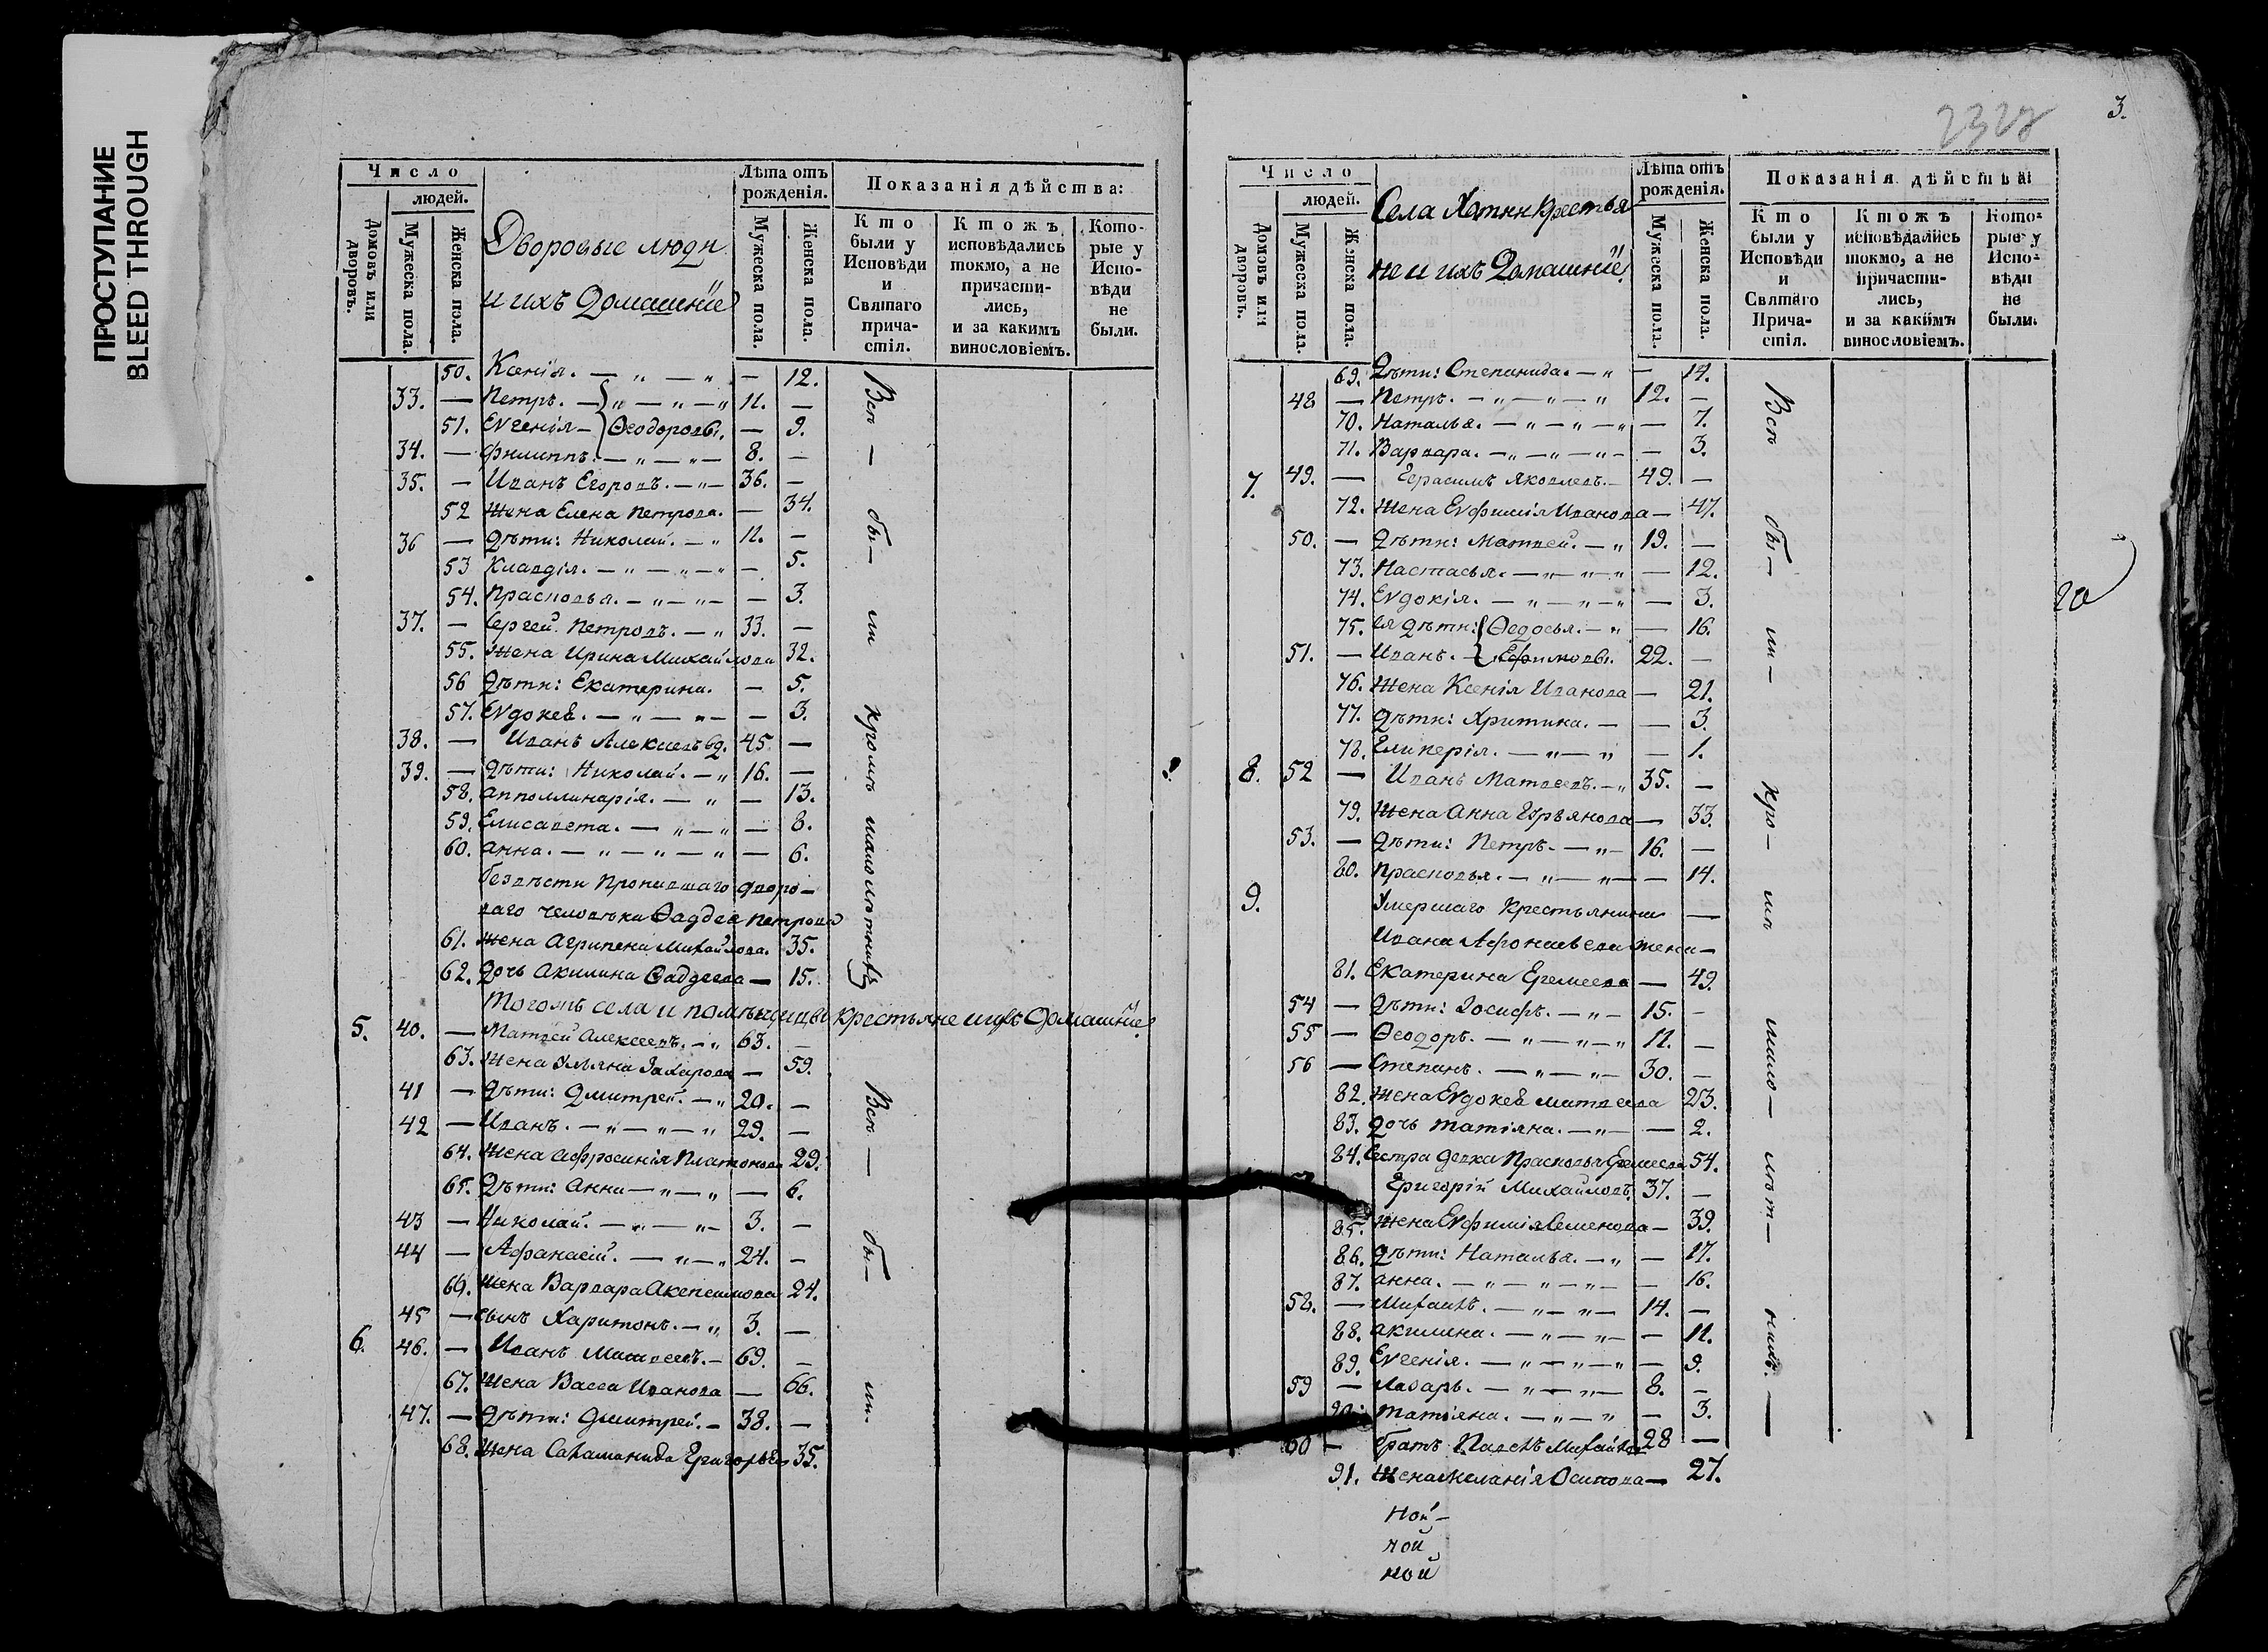 ПРОСТУПАНИЕ
BLEED THROUGH
Число
людей.
Домовъ или дворовъ.
Мужеска пола.
Женска пола.
Дворовые люди
и ихъ Домашнїе
Лѣта отъ рожденія.
Мужеска пола.
Женска пола.
Показанія дѣйства:
Кто были у Исповѣди и Святаго причастія.
Ктожъ исповѣдались токмо, а не причастились, и за какимъ винословіемъ.
Которые у Исповѣди не были.
50. Ксенія. — „ — „ — 12.
33. — Петръ. — „ — „ — „ 11. —
51. Евгенія — Ѳеодоровы. — 9.
34. — Филиппъ. — „ — „ — 8. —
35. — Иванъ Егоровъ. — „ — 36. —
52 Жена Елена Петрова. — 34.
36 — Дѣти: Николай. — „ 11. —
53 Клавдія. — „ — „ — „ — 5.
54. Прасковья. — „ — „ — — 3.
37. — Сергей Петровъ. — „ 33. —
55. Жена Ирина Михайлова 32.
56 Дѣти: Екатерина. — 5.
57. Евдокея. — „ — „ — — 3.
38. — Иванъ Алексеевъ вд. 45. —
39. — Дѣти: Николай. — „ 16. —
58. Апполлинарія. — „ — 13.
59. Елисавета. — „ — „ — 8.
60. Анна. — „ — „ — „ — 6.
безвѣсти пропавшаго дворо-
ваго человѣка Ѳаддея Петрова
61. Жена Агрипена Михайлова. 35.
62. Дочь Акилина Ѳаддеева — 15.
Всѣ — бы — ли кромѣ малолѣтнихъ
Тогожъ села и помѣщицы крестьяне и ихъ домашнїе
5. 40. — Матвей Алексеевъ. — „ 63. —
63. Жена Ульяна Захарова — 59.
41 — Дѣти: Дмитрей. — „ 20. —
42 — Иванъ. — „ — „ — „ 29. —
64. Жена Афросинія Платонова 29.
65. Дѣти: Анна — „ — „ — 6.
43 — Николай. — „ — „ — 3. —
44 — Афанасій. — „ — „ 24. —
66. Жена Варвара 24.
45 — сынъ Харитонъ. — „ 3. —
6. 46. — Иванъ Матвеевъ. — 69. —
67. Жена Васса Иванова — 66.
47. — Дѣти: Дмитрей. — 38. —
68. Жена Саламанида Григорьева 35.
Всѣ — бы — ли.
2327
3.
Число
людей.
Домовъ или дворовъ.
Мужеска пола.
Женска пола.
Села Хотни Крестья
не и ихъ Домашнїе
Лѣта отъ рожденія.
Мужеска пола.
Женска пола.
Показанія дѣйства
Кто были у Исповѣди и Святаго Причастія.
Ктожъ исповѣдались токмо, а не причастились, и за какимъ винословіемъ.
Которые у Исповѣди не были.
69. Дѣти: Степанида. — „ — 14.
48 — Петръ. — „ — „ — „ 12. —
70. Наталья. — „ — „ — „ — 7.
71. Варвара. — „ — „ — „ — — 3.
7. 49. — Герасимъ Яковлевъ. — 49. —
72. Жена Евфимія Иванова — 47.
50. — Дѣти: Матвей. — „ 19. —
73. Настасья. — „ — „ — „ — 12.
74. Евдокія. — „ — „ — „ — 3.
75. Ея дѣти: Ѳедосья. — „ — 16.
51. — Иванъ. — Ефимовы. 22. —
76. Жена Ксенія Иванова — 21.
77. Дѣти: Хритина. — — 3.
78. Гликерія. — „ — „ — 1.
8. 52 — Иванъ Матвеевъ. — „ 35. —
79. Жена Анна — 33.
53. — Дѣти: Петръ. — „ — 16. —
80. Прасковья. — „ — „ — — 14.
9. Умершаго Крестьянина —
Ивана Афонасьева жена —
81. Екатерина Еремеева — 49.
54 — Дѣти: Іосифъ. — „ — 15. —
55 — Ѳеодоръ. — „ — „ — „ 11. —
56 — Степанъ. — „ — „ — 30. —
82. Жена Евдокея Матвеева 23.
83. Дочь Татіяна. — „ — — 2.
84. Сестра девка Прасковья Еремеева 54.
Григорій Михайловъ. 37. —
85. Жена Евфимія Семенова — 39.
86. Дѣти: Наталья. — „ — 17.
87. Анна. — „ — „ — „ — — 16.
58. — Михаилъ. — „ — „ — 14. —
88. Акилина. — „ — „ — — 11.
89. Евгенія. — „ — „ — „ — 9.
59 — Лазарь. — „ — „ — 8. —
90. Татіяна. — „ — „ — 3.
60 — братъ Павелъ 28 —
91. Жена Меланія Осипова — 27.
Всѣ бы — ли — кро — мѣ мало — лѣт — нихъ. —